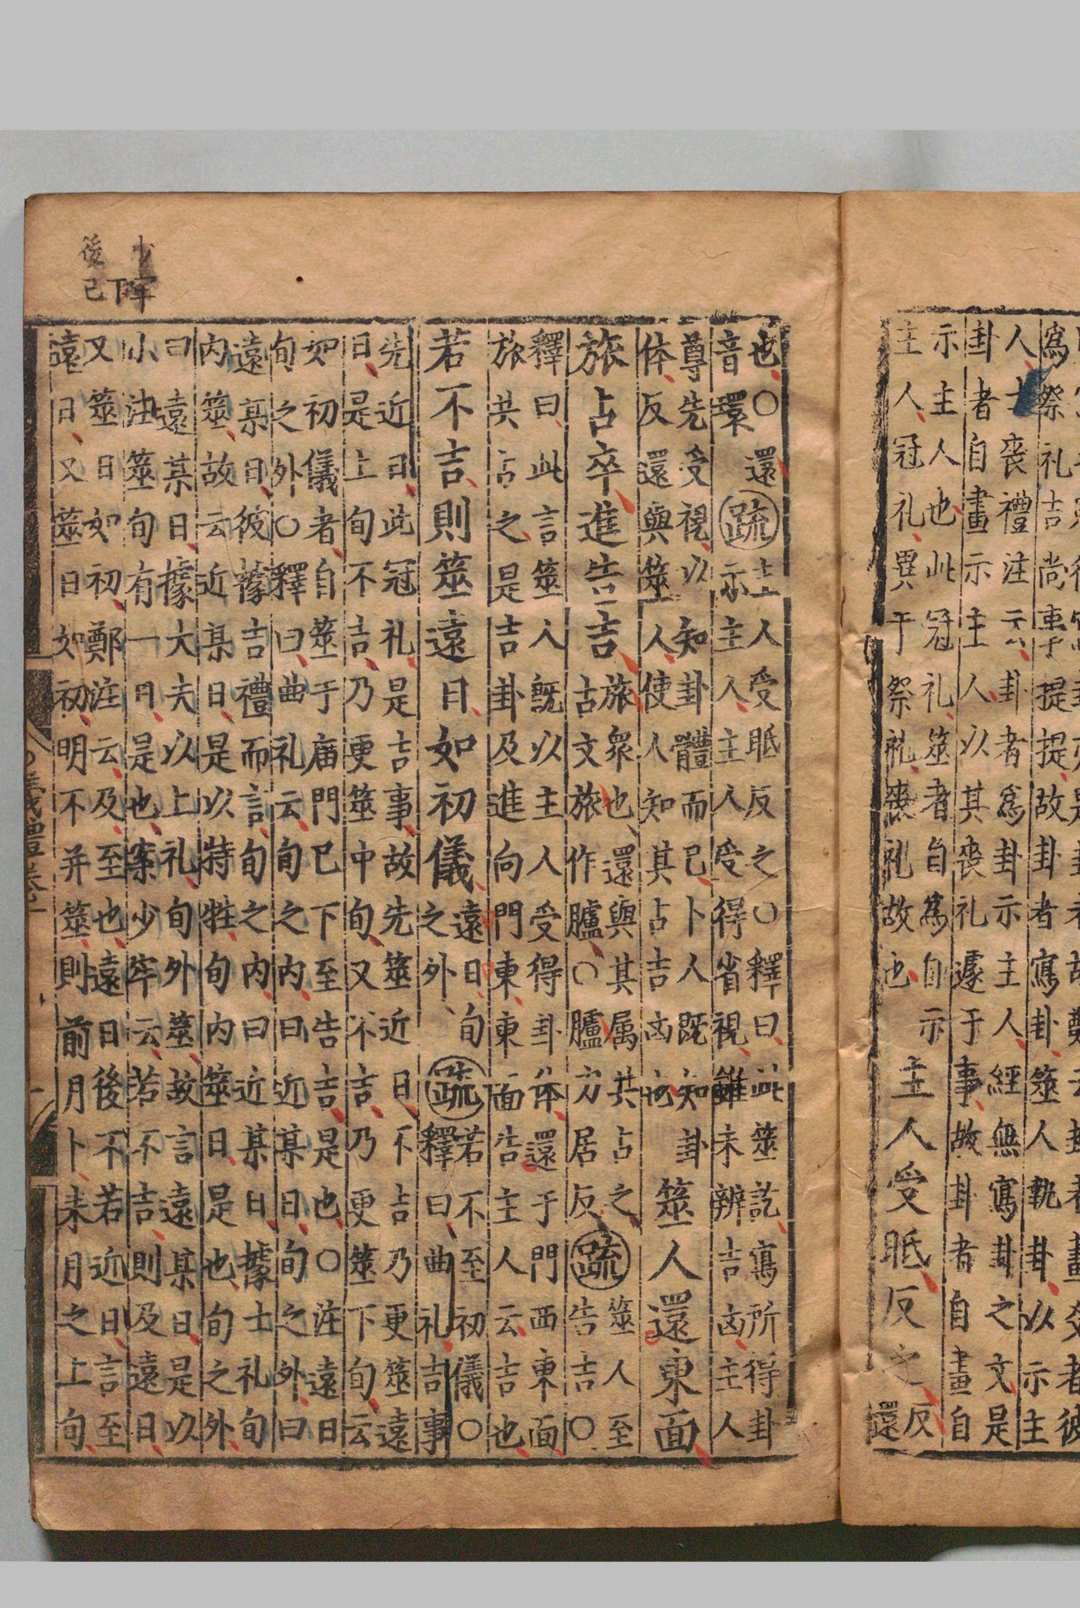 寫祭礼吉尚事提提故卦者寫卦筮人執卦以示主
人士喪禮注云卦者爲卦示主人經無寫卦之文是
卦者自畫示主人以其喪礼遽于事故卦者自畫自
示主人也此冠礼筮者自爲自示
主人冠礼異于祭礼喪礼故也
主人受眡反之
反
還
也〇還
音環
疏
主人受眡反之〇釋曰此筮訖寫所得卦
示主人主人受得省視雖未辨吉凶主人
尊先受視以知卦體而已卜人既知卦
体反還與筮人使人知其占吉凶也
筮人還東面
旅占卒進告吉
旅衆也還與其属共占之
古文旅作臚〇臚力居反
疏
筮人至
告吉〇
釋曰此言筮人既以主人受得卦体還于門西東面
旅共占之是吉卦及進向門東東面告主人云吉也
若不吉則筮遠日如初儀
遠日旬
之外
疏
若不至初儀〇
釋曰曲礼吉事
先近日此冠礼是吉事故先筮近日不吉乃更筮遠
日是上旬不吉乃更筮中旬又不吉乃更筮下旬云
如初儀者自筮于庿門已下至告吉是也〇注遠日
旬之外〇釋曰曲礼云旬之内曰近某日旬之外曰
遠某日彼據吉禮而言旬之内曰近某日據士礼旬
内筮故云近某日是以特牲旬内筮日是也旬之外
曰遠某日據大夫以上礼旬外筮故言遠某日是以
小注筮旬有一日是也案少牢云若不吉則及遠日
又筮日如初鄭注云及至也遠日後不若近日言至
遠日又筮日如初明不并筮則前月卜来月之上旬
儀禮卷一